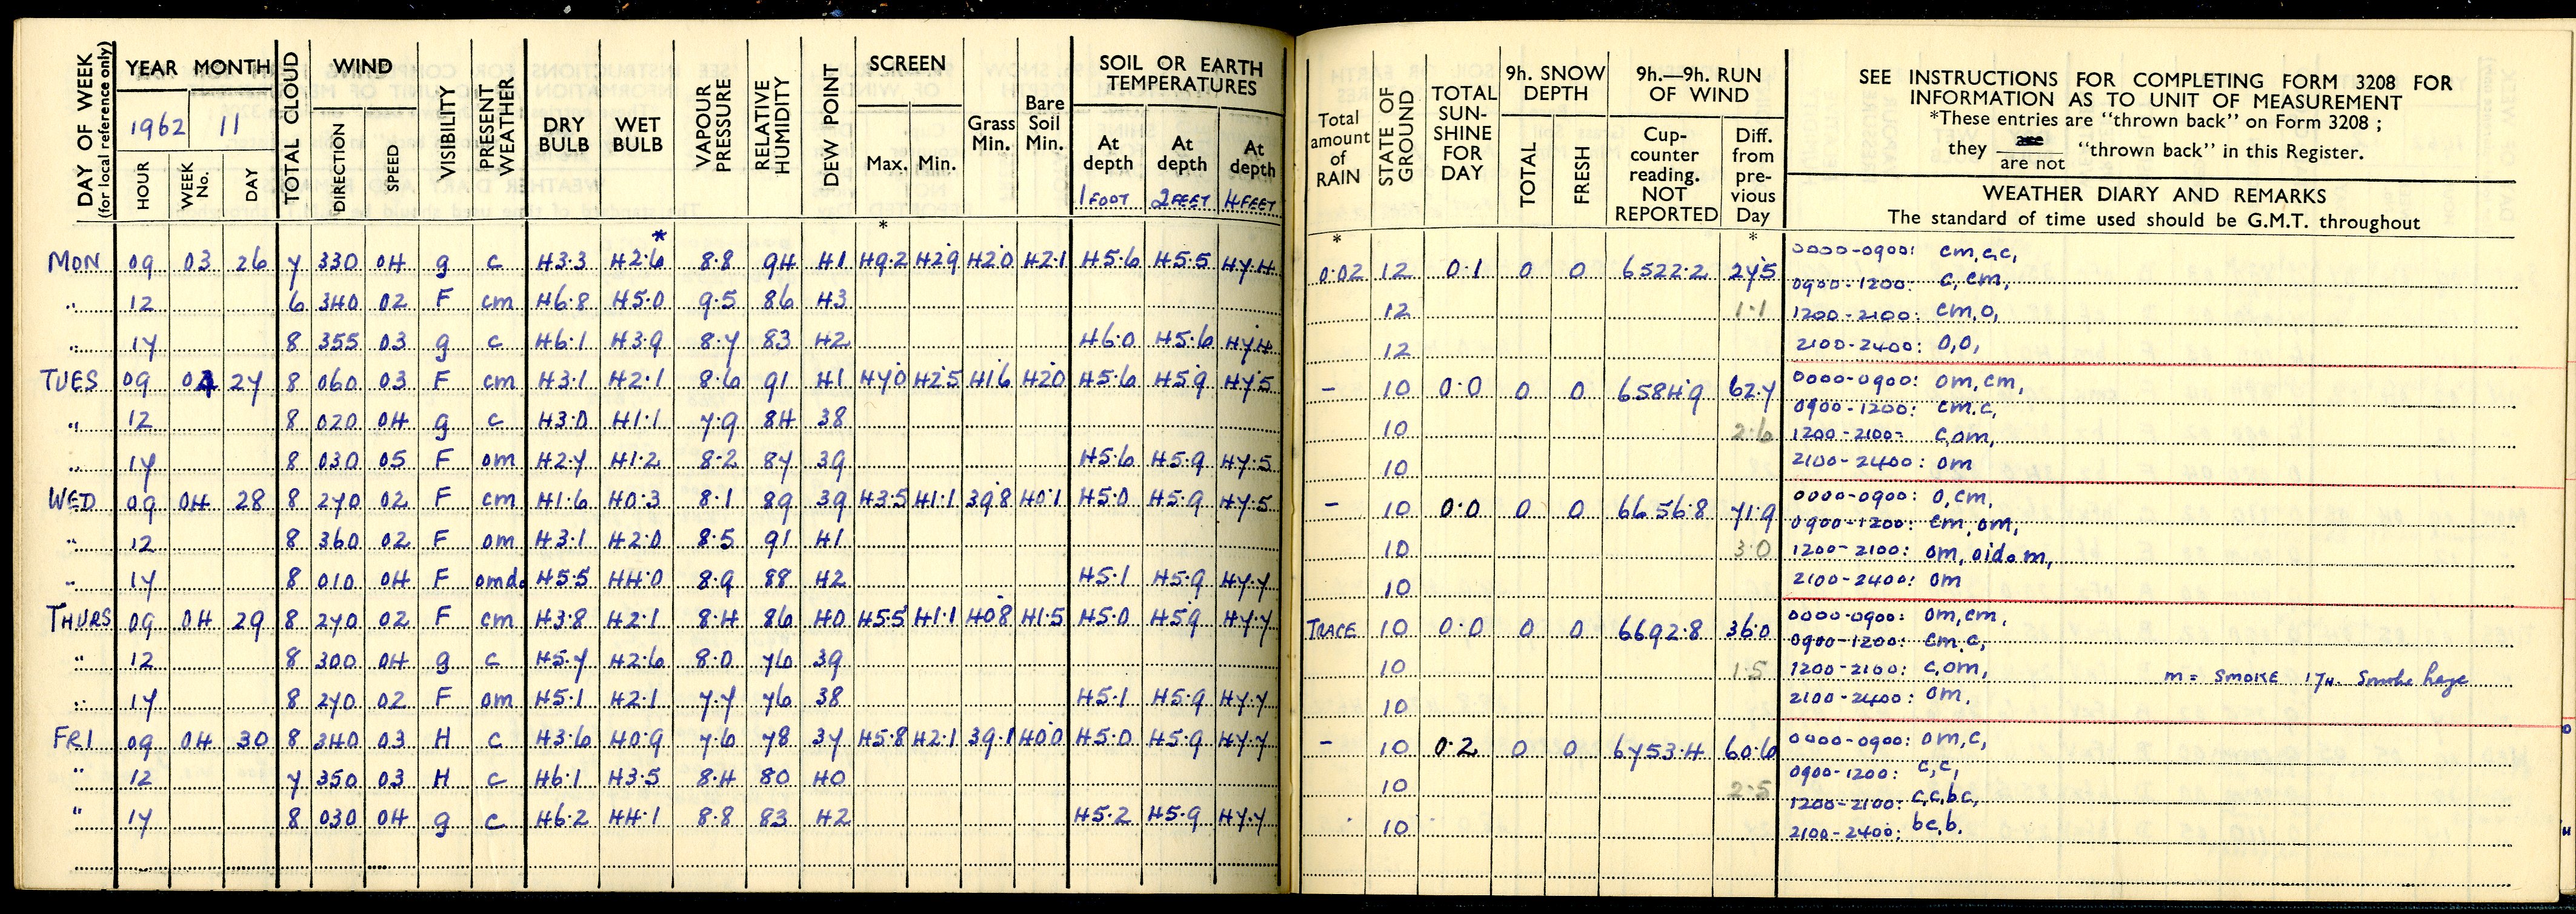 DAY OF WEEK (for local reference only) YEAR MONTH HOUR WEEK No. DAY TOTAL CLOUD WIND DIRECTION SPEED VISIBILITY PRESENT WEATHER DRY BULB WET BULB VAPOUR PRESSURE RELATIVE HUMIDITY DEW POINT SCREEN Max. Min. Grass Min. Bare Soil Min. SOIL OR EARTH TEMPERATURES At depth At depth At depth
1962 11
1 FOOT 2 FEET 4 FEET
* *
MON 09 03 26 7 330 04 g c 43.3 42.6 8.8 94 41 49.2 42.9 42.0 42.1 45.6 45.5 47.4
" 12 6 340 02 F cm 46.8 45.0 9.5 86 43
" 17 8 355 03 g c 46.1 43.9 8.7 83 42 46.0 45.6 47.4
TUES 09 04 27 8 060 03 F cm 43.1 42.1 8.6 91 41 47.0 42.5 41.6 42.0 45.6 45.9 47.5
" 12 8 020 04 g c 43.0 41.1 7.9 84 38
" 17 8 030 05 F om 42.7 41.2 8.2 87 39 45.6 45.9 47.5
WED 09 04 28 8 270 02 F cm 41.6 40.3 8.1 89 39 43.5 41.1 39.8 40.1 45.0 45.9 47.5
" 12 8 360 02 F om 43.1 42.0 8.5 91 41
" 17 8 010 04 F omdo 45.5 44.0 8.9 88 42 45.1 45.9 47.7
THURS 09 04 29 8 270 02 F cm 43.8 42.1 8.4 86 40 45.5 41.1 40.8 41.5 45.0 45.9 47.7
" 12 8 300 04 g c 45.7 42.6 8.0 76 39
" 17 8 270 02 F om 45.1 42.1 7.7 76 38 45.1 45.9 47.7
FRI 09 04 30 8 340 03 H c 43.6 40.9 7.6 78 37 45.8 42.1 39.1 40.0 45.0 45.9 47.7
" 12 7 350 03 H c 46.1 43.5 8.4 80 40
" 17 8 030 04 g c 46.2 44.1 8.8 83 42 45.2 45.9 47.7
Total amount of RAIN STATE OF GROUND TOTAL SUN-SHINE FOR DAY 9h. SNOW DEPTH TOTAL FRESH 9h.—9h. RUN OF WIND Cup-counter reading. NOT REPORTED Diff. from pre-vious Day
SEE INSTRUCTIONS FOR COMPLETING FORM 3208 FOR
INFORMATION AS TO UNIT OF MEASUREMENT
*These entries are "thrown back" on Form 3208 ;
they are / are not "thrown back" in this Register.
WEATHER DIARY AND REMARKS
The standard of time used should be G.M.T. throughout
* *
0.02 12 0.1 0 0 6522.2 27.5 0000-0900: cm,c,c,
0900-1200: c, cm,
12 1.1 1200-2100: cm,o,
12 2100-2400: o,o,
- 10 0.0 0 0 6584.9 62.7 0000-0900: om, cm,
0900-1200: cm.c,
10 2.6 1200-2100- c,om,
10 2100-2400: om
- 10 0.0 0 0 6656.8 71.9 0000-0900: o,cm,
0900-1200: cm, om,
10 3.0 1200-2100: om, oidom,
10 2100-2400: om
TRACE 10 0.0 0 0 6692.8 36.0 0000-0900: om,cm,
0900-1200: cm.c,
10 1.5 1200-2100: c,om, m = SMOKE 17H. Smoke haze
10 2100-2400: om,
- 10 0.2 0 0 6753.4 60.6 0000-0900: om,c,
0900-1200: c,c,
10 2.5 1200-2100: c,c,bc,
10 2100-2400: bc,b.